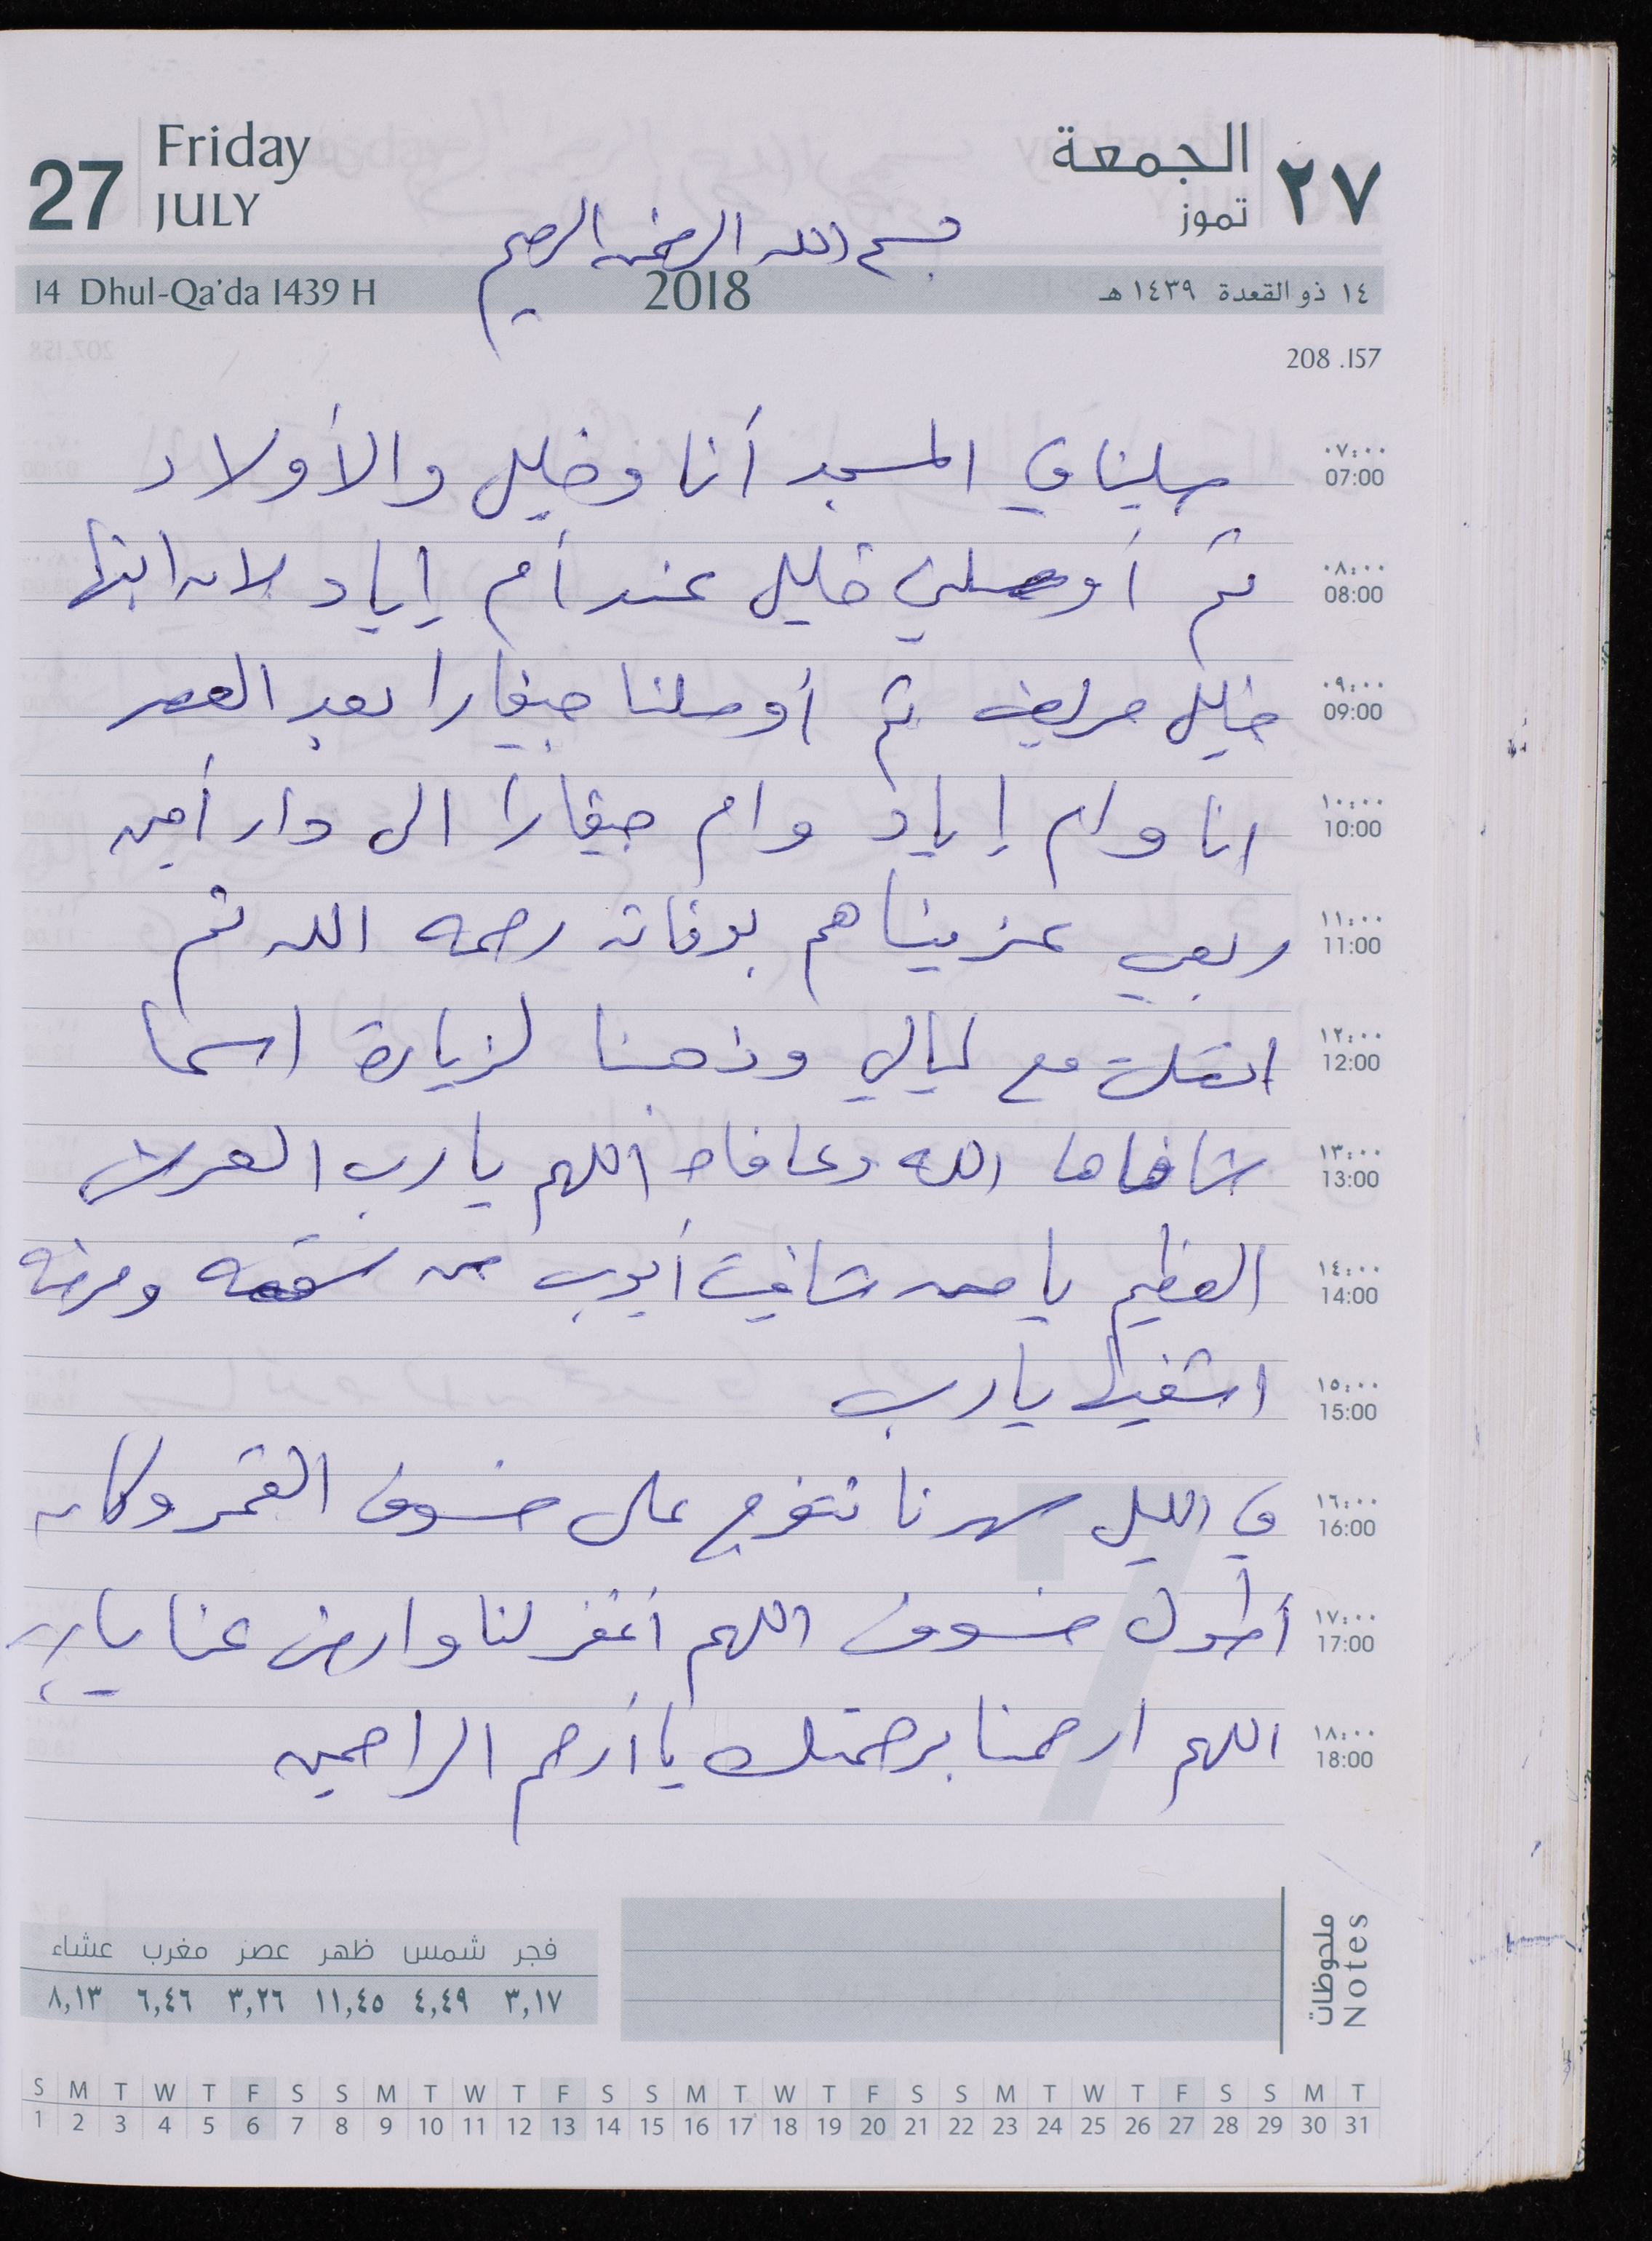 27 Friday JULY الجمعة تموز ٢٧
بسم الله الرحمن الرحيم
14 Dhul-Qa'da 1439 H 2018 ١٤ ذو القعدة ١٤٣٩ هـ
208 .157
٠٧:٠٠ 07:00 صلينا في المسجد أنا وخليل والأولاد
٠٨:٠٠ 08:00 ثم أوصلني خليل عند أم إياد لان ابنها
٠٩:٠٠ 09:00 خليل مريض ثم أوصلنا جيفارا بعد العصر
١٠:٠٠ 10:00 انا وام إياد وام جيفارا الى دار أمين
١١:٠٠ 11:00 ربعي عزيناهم بوفاته رحمه الله ثم
١٢:٠٠ 12:00 مع ليالي وذهبنا لزيارة اسما
١٣:٠٠ 13:00 شافاها الله وعافاها اللهم يا رب العرش
١٤:٠٠ 14:00 العظيم يا من شافيت أيوب من سقمه ومرضه
١٥:٠٠ 15:00 اشفيها يا رب
١٦:٠٠ 16:00 في الليل سهرنا نتفرج على خسوف القمر وكان
١٧:٠٠ 17:00 أطول خسوف اللهم أغفر لنا وارض عنا يا رب
١٨:٠٠ 18:00 اللهم ارحمنا برحمتك يا أرحم الراحمين
ملحوظات Notes
فجر شمس ظهر عصر مغرب عشاء
٣,١٧ ٤,٤٩ ١١,٤٥ ٣,٢٦ ٦,٤٦ ٨,١٣
S M T W T F S S M T W T F S S M T W T F S S M T W T F S S M T
1 2 3 4 5 6 7 8 9 10 11 12 13 14 15 16 17 18 19 20 21 22 23 24 25 26 27 28 29 30 31